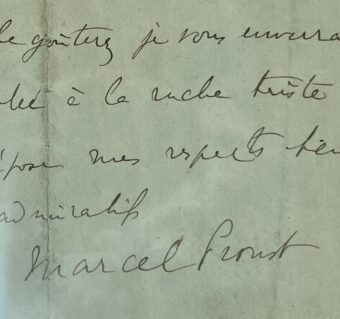 le goûterez je vous enverra
à la ruche triste
mes respects
admiratifs
Marcel Proust